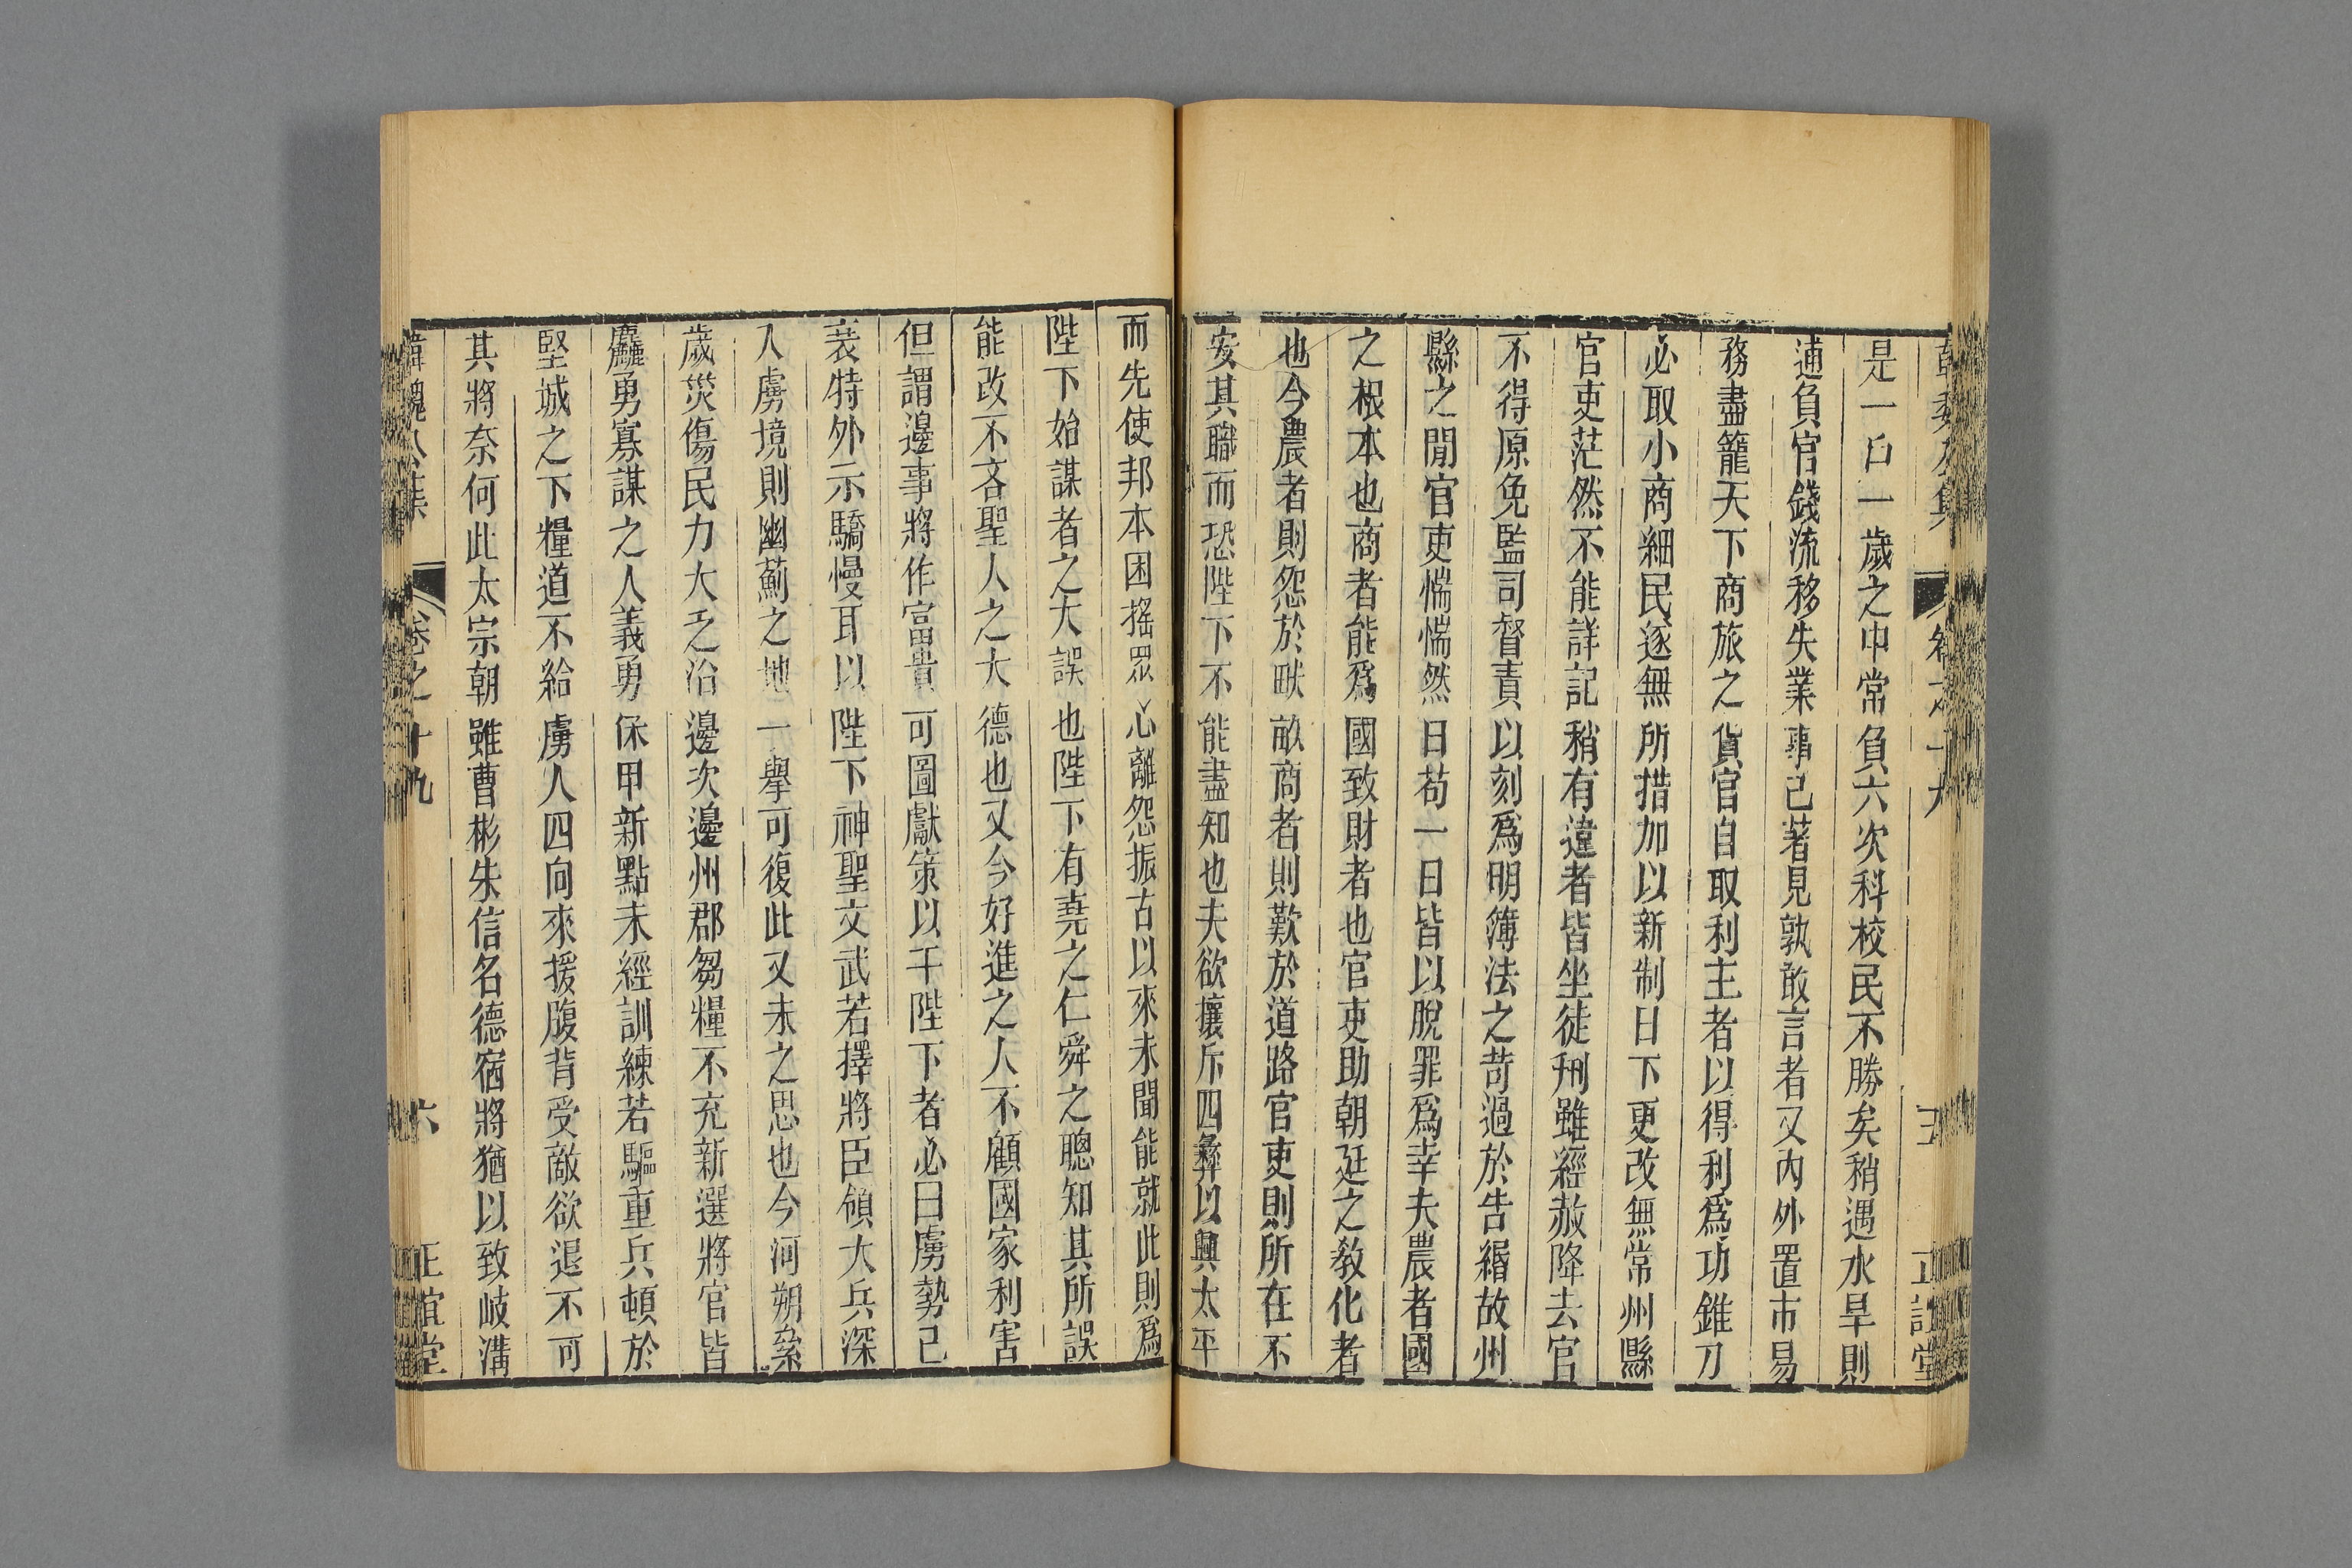 韓魏公集 卷之十九 五 正誼堂
是一戶一歲之中常負六次科校民不勝矣稍遇水旱則
逋負官錢流移失業事已著見孰敢言者又內外置市易
務盡籠天下商旅之貨官自取利主者以得利爲功錐刀
必取小商細民逐無所措加以新制日下更改無常州縣
官吏茫然不能詳記稍有違者皆坐徒刑雖經赦降去官
不得原免監司督責以刻爲明簿法之苛過於告緡故州
縣之閒官吏惴惴然日苟一日皆以脫罪爲幸夫農者國
之根本也商者能爲國致財者也官吏助朝廷之敎化者
也今農者則怨於畎畝商者則歎於道路官吏則所在不
安其職而恐陛下不能盡知也夫欲攘斥四彝以興太平
而先使邦本困搖眾心離怨振古以來未聞能就此則爲
陛下始謀者之大誤也陛下有堯之仁舜之聰知其所誤
能改不吝聖人之大德也又今好進之人不顧國家利害
但謂邊事將作富貴可圖獻策以干陛下者必曰虜勢已
衰特外示驕慢耳以陛下神聖文武若擇將臣領大兵深
入虜境則幽薊之地一舉可復此又未之思也今河朔纍
歲災傷民力大乏沿邊次邊州郡芻糧不充新選將官皆
麤勇寡謀之人義勇保甲新點未經訓練若驅重兵頓於
堅城之下糧道不給虜人四向來援腹背受敵欲退不可
其將奈何此太宗朝雖曹彬朱信名德宿將猶以致岐溝
韓魏公集 卷之十九 六 正誼堂